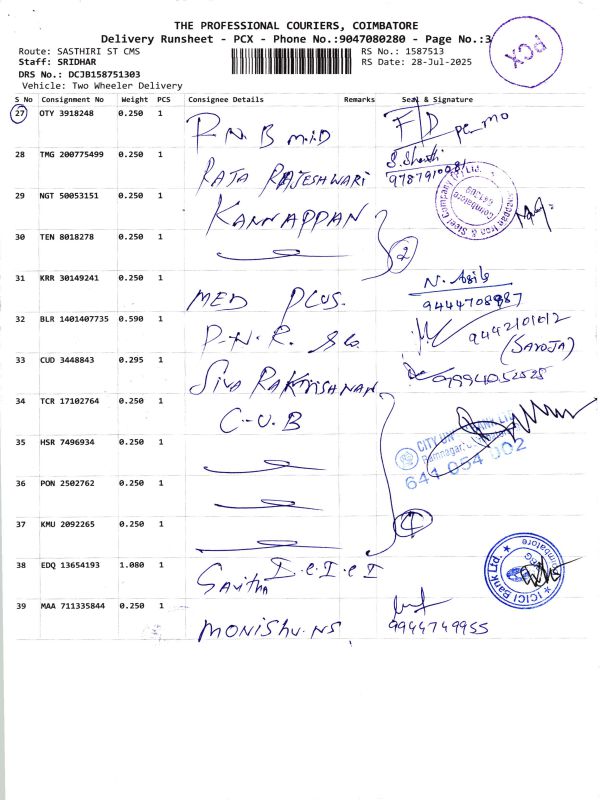 THE PROFESSIONAL COURIERS, COIMBATORE
Delivery Runsheet - PCX - Phone No.:9047080280 - Page No.:3
PCX
Route: SASTHIRI ST CMS
RS No.: 1587513
Staff: SRIDHAR
RS Date: 28-Jul-2025
DRS No.: DCJB158751303
Vehicle: Two Wheeler Delivery
S No Consignment No Weight PCS Consignee Details Remarks Seal & Signature
27 OTY 3918248 0.250 1 P.N.B
28 TMG 200775499 0.250 1 RAJA RAJESHWARI
29 NGT 50053151 0.250 1 KANNAPPAN
30 TEN 8018278 0.250 1
2
31 KRR 30149241 0.250 1 MED PLUS.
32 BLR 1401407735 0.590 1 P.N.R.
(SAROJA)
33 CUD 3448843 0.295 1 SIVA
34 TCR 17102764 0.250 1 C-U.B
641 054 002
35 HSR 7496934 0.250 1
36 PON 2502762 0.250 1
37 KMU 2092265 0.250 1
4
38 EDQ 13654193 1.080 1 I.C.I.C.I
ICICI Bank Ltd. Coimbatore
Savitha
39 MAA 711335844 0.250 1
9944749955